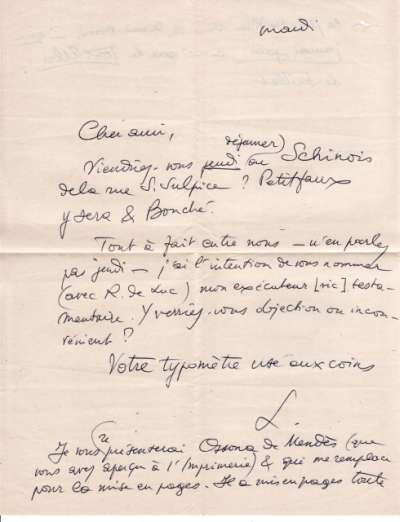 mardi
Cher ami,
déjeuner)
Viendriez-vous jeudi au Schinois
de la rue S. Sulpice ? Petitfaux
y sera & Bonché.
Tout à fait entre nous – n'en parlez
pas jeudi – j'ai l'intention de vous nommer
(avec R. de Luc) mon exécuteur [sic] testa-
mentaire. Y verriez-vous objection ou incon-
vénient ?
Votre typomètre usé aux coins
L.
Je vous (re
présenterai Ossona de Mendès (que
vous avez aperçu à l'Imprimerie) & qui me remplace
pour la mise en pages. Il a mis en pages toute